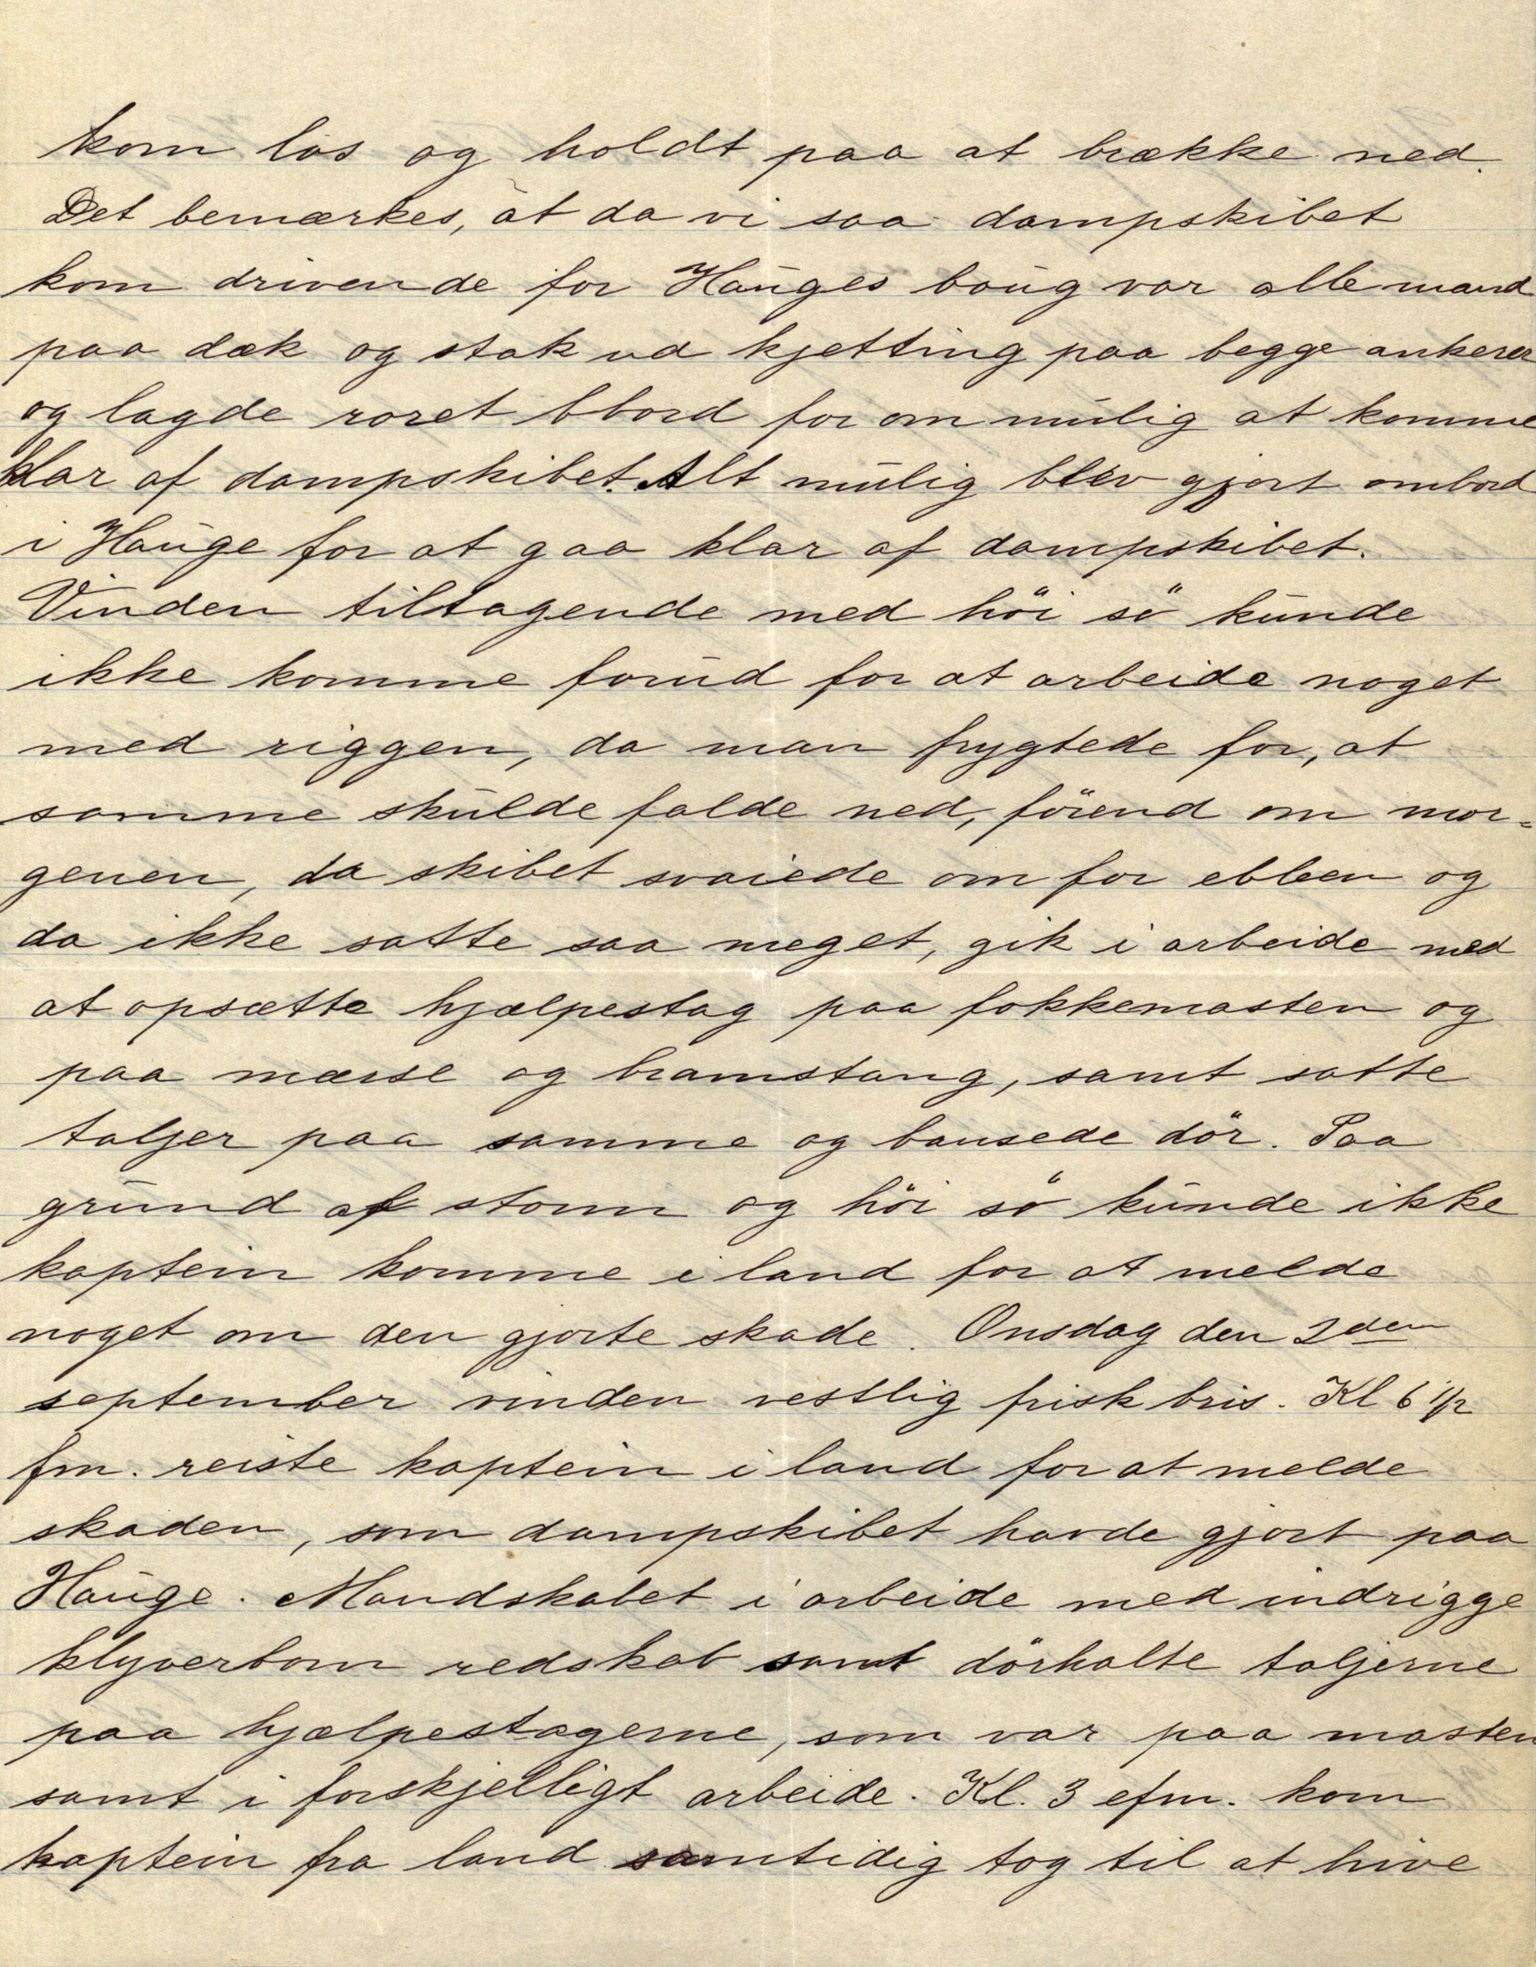 kom løs og holdt paa at brække ned.
Det bemærkes, at da vi saa dampskibet
kom drivende for Hauges boug var alle mand
paa dæk og stak ud kjetting paa begge ankerer
og lagde roret bbord for om mulig at komme
klar af dampskibet. Alt mulig blev gjort ombord
i Hauge for at gaa klar af dampskibet.
Vinden tiltagende med höi sö kunde
ikke komme forud for at arbeide noget
med riggen, da man frygtede for, at
samme skulde falde ned, förend om mor-
genen, da skibet svaiede om for ebben og
da ikke satte saa meget, gik i arbeide med
at opsætte hjælpestag paa fokkemasten og
paa mærse og bramstang, samt satte
taljer paa samme og bansede dör. Paa
grund af storm og höi sö kunde ikke
kaptein komme i land for at melde
noget om den gjorte skade. Onsdag den 2den
september vinden vestlig frisk bris. Kl 6 1/2
fm. reiste kaptein i land for at melde
skaden, som dampskibet havde gjort paa
Hauge. Mandskabet i arbeide med indrigge
klyverbom redskab samt dörhalte taljerne
paa hjælpestagerne, som var paa masten
samt i forskjelligt arbeide. Kl. 3 efm. kom
kaptein fra land samtidig tog til at hive